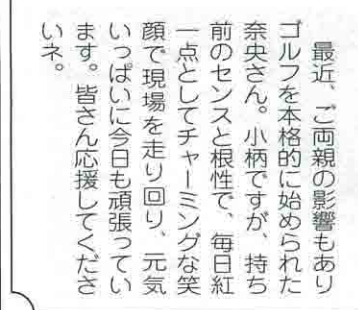 最近、ご両親の影響もあり
ゴルフを本格的に始められた
奈央さん。小柄ですが、持ち
前のセンスと根性で、毎日紅
一点としてチャーミングな笑
顔で現場を走り回り、元気
いっぱいに今日も頑張ってい
ます。皆さん応援してくださ
いネ。